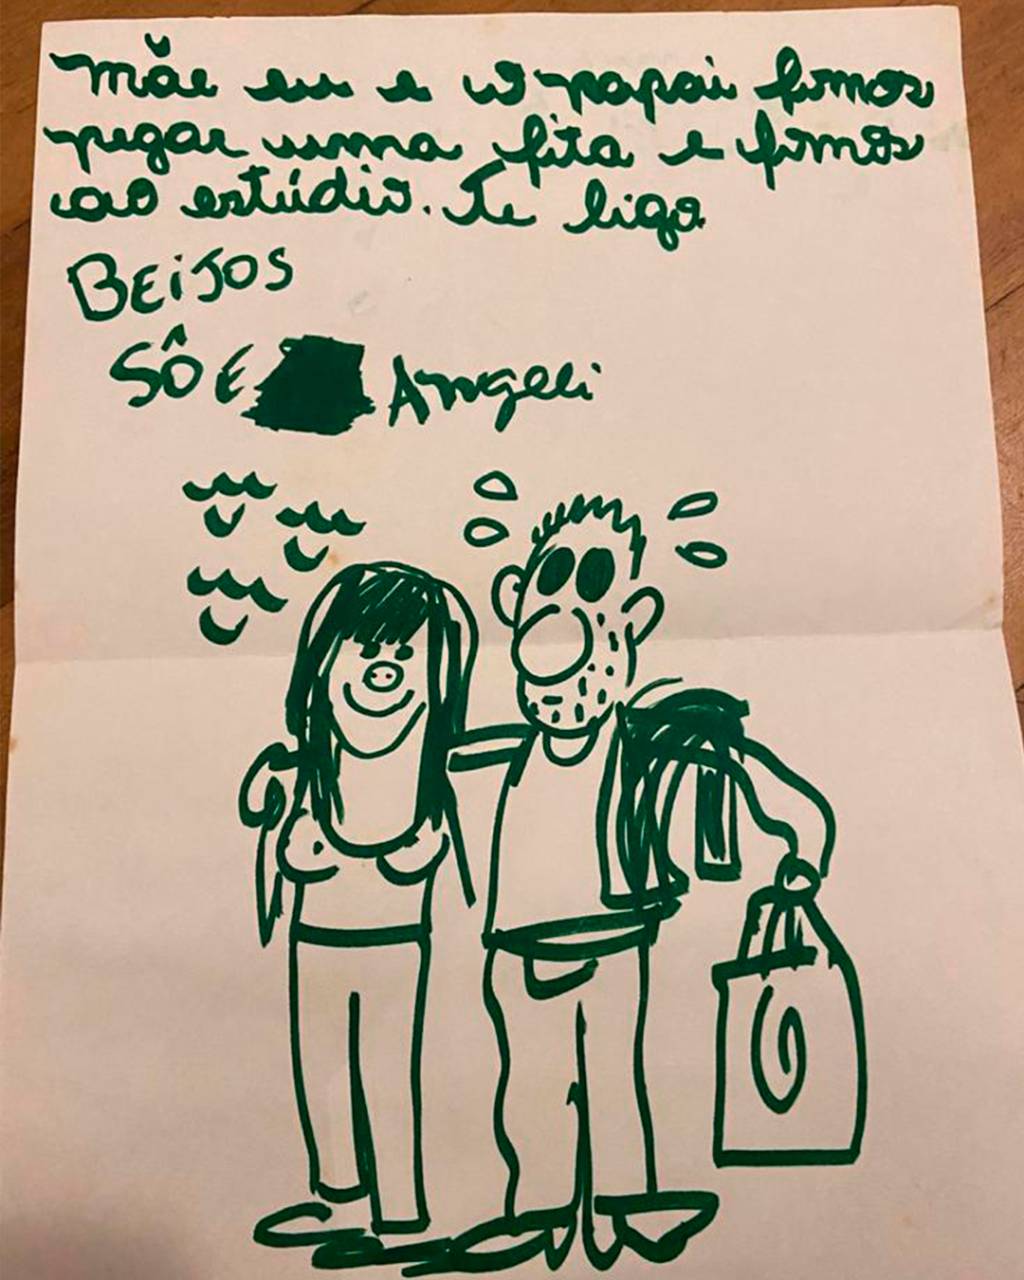 Mãe eu e o papai fomos
pegar uma fita e fomos
ao estúdio. Te ligo
BEIJOS
SÔ E Angeli